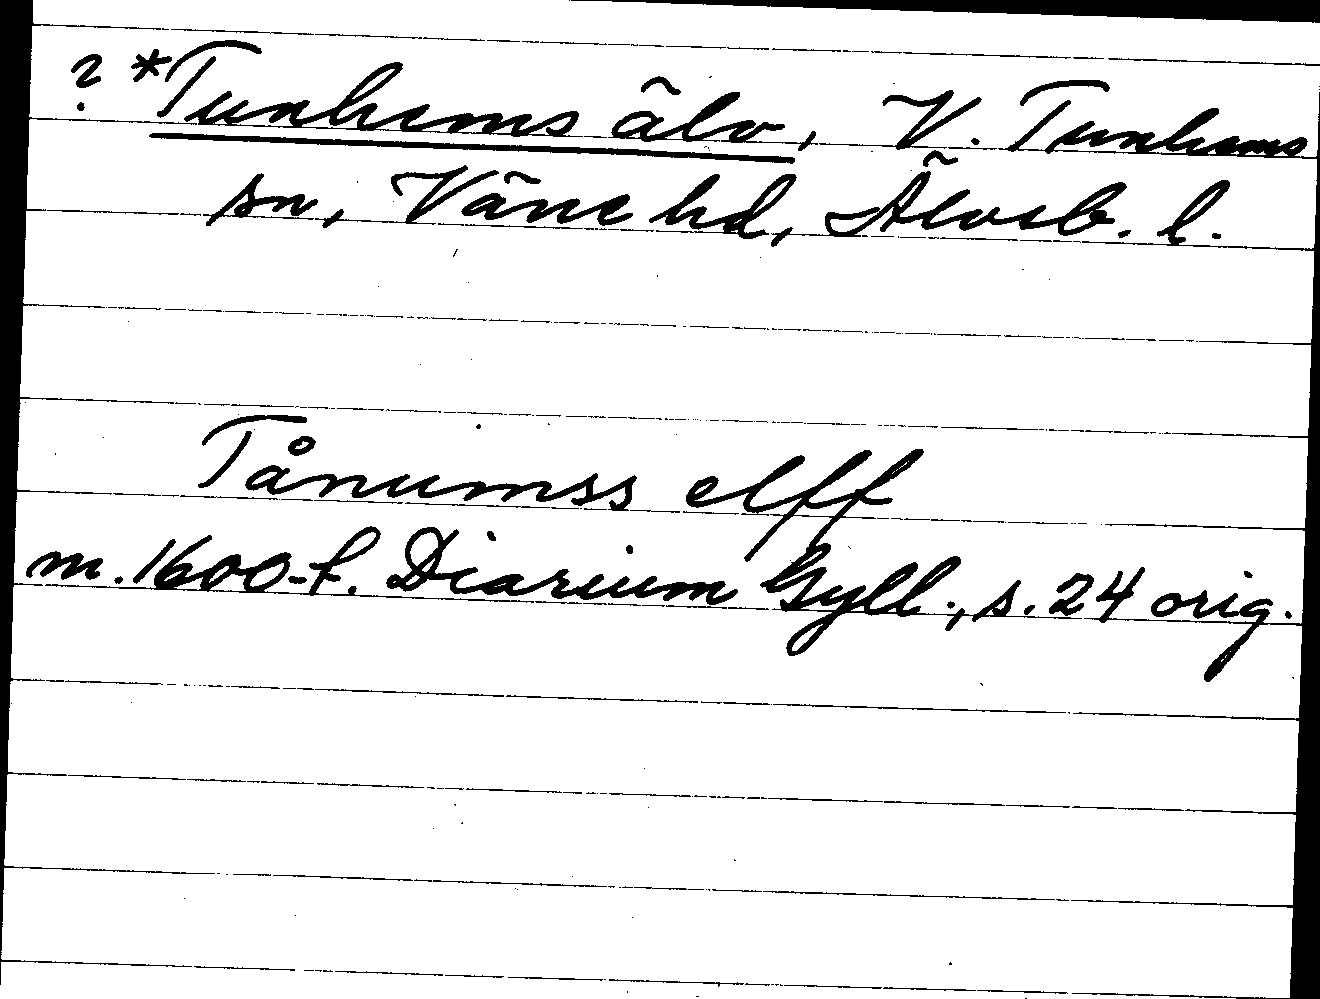 ? *Tunhems älv, V. Tunhems
sn, Väne hd, Älvsb. l.
Tånumss elff
m. 1600-t. Diarium Gyll., s. 24 orig.